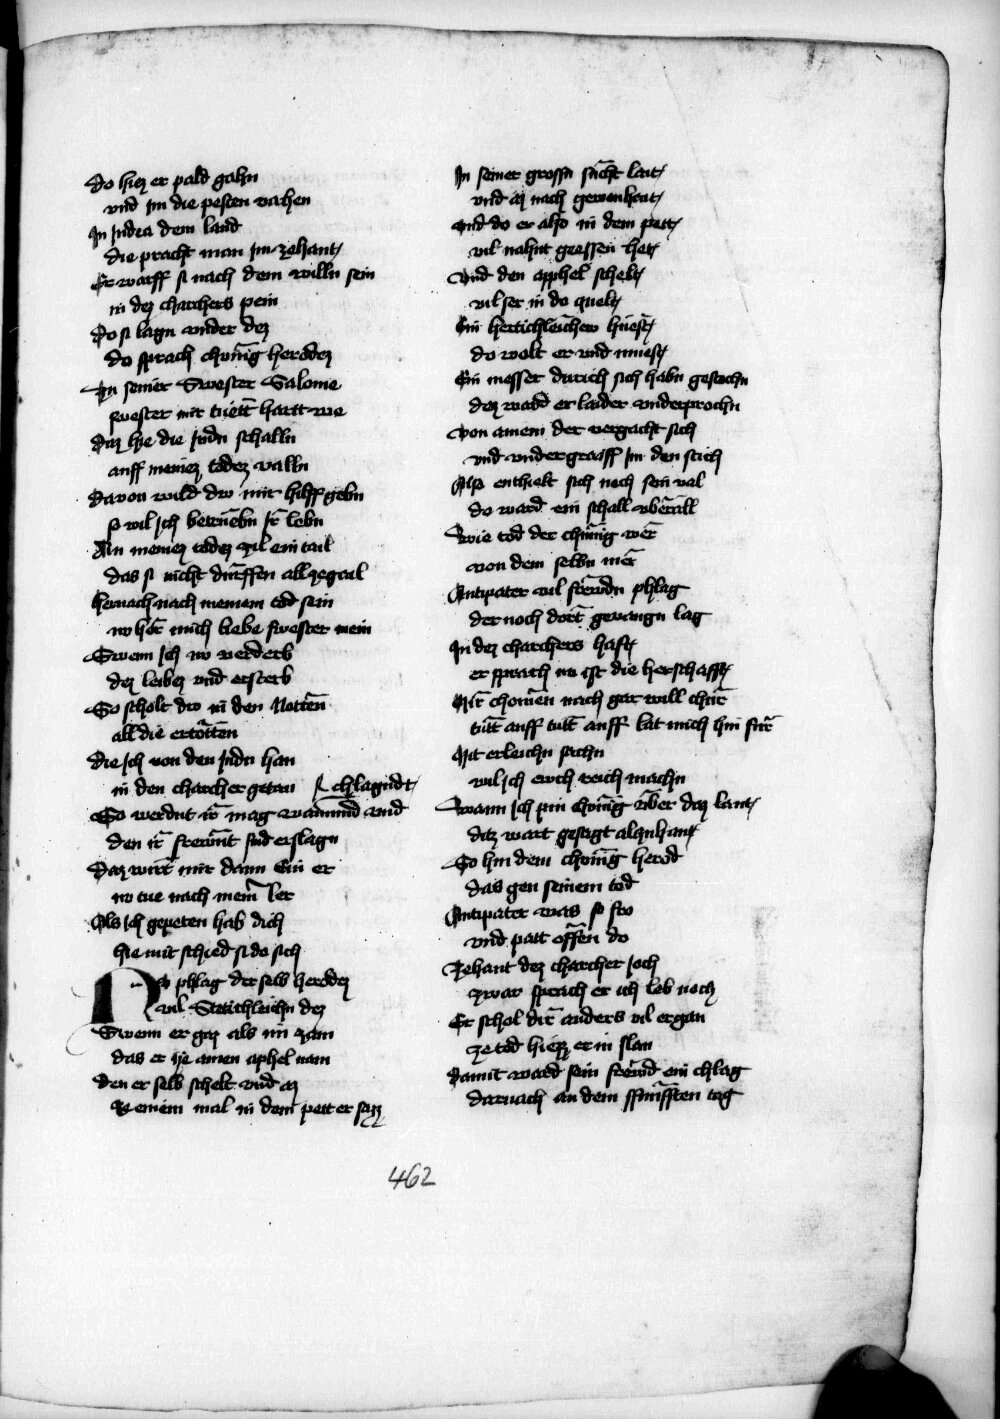 Do hiez er pald gahn
vnd im die pesten vahen
In Judea dem land
die pracht man im zehant
Er warff si nach dem willn sein
in dez charchers pein
Do si lagn vnder dez
do sprach chönig herodez
Zu seiner Swester Salome
swester mir tuett hartt we
Daz hie die Judn schalln
auff meinez todez valln
Davon wild dw mir hilff gebn
so wil ich betrüebn ir lebn
An meinez todez zil ein tail
das si nicht dürffen all ze geail
hernach nach meinem tod sein
nv hör mich liebe swester mein
Swenn ich nv verderb
dez leibez vnd ersterb
So scholt dw in den Notten
all die ertötten
die ich von den Judn han
in den charcher getan
So werdnt ir mag vnd chlagndt
den ir frewnt sind erslagn
Daz wirt mir dann Ein er
nv tue nach meinr ler
Als ich gepeten hab dich
hie mit schied si do sich
Nv phlag der selb herodez
vil Stetichleichn dez
Swenn er gaz als im zam
das er ye ainen aphel nam
den er selb schelt vnd az
Ze einem mal in dem pett er saz
In seiner grossn sücht lait
vnd az nach gewonhait
Vnd do er also in dem pett
vil nahnt geessen het
Vnd den apphel schelt
vil ser in do quelt
Ein hertichleicher huest
do wolt er vnd muest
Ein messer durich sich habn gestochn
dez ward er laider vnderprochn
Von ainem der vergacht sich
vnd vndergraiff im den stich
Also enthielt sich noch sein val
do ward ein schall vberall
Wie tod der chünig wer
von dem selbn mer
Antipater vil frewdn phlag
der noch dort gevangn lag
In dez charchers haft
er sprach nv ist die herschafft
Mir chomen nach gar will chür
tutt auff tutt auff lat mich hin für
Mit erleichn sachn
wil ich ewch reich machn
Wann ich pin chönig vber daz lant
ditz wart gesagt alzuhant
So hin dem chönig herod
das gen seinem tod
Antipater was so fro
vnd patt offen do
Zehant dez charcher loch
zwar sprach er ich leb noch
Er schol dir anders vil ergan
ze tod hiezz er in slan
Damit ward sein frewd ein chlag
darnach an dem fünfften tag
462